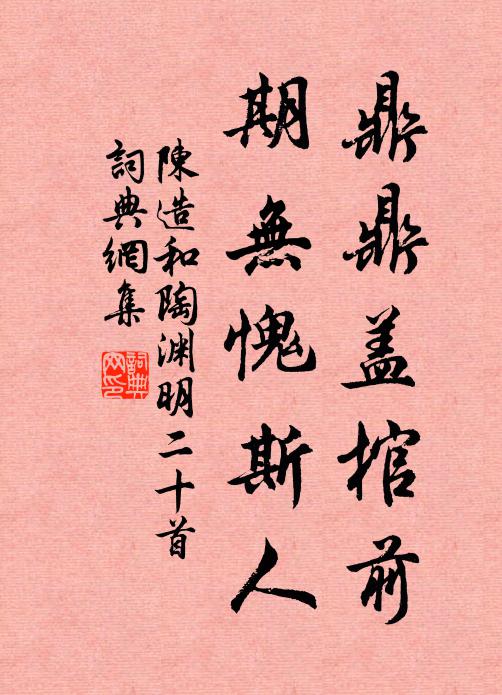 鼎鼎盖棺前
期無愧斯人
陳造和陶渊明二十首
詞典網集
詞典网印